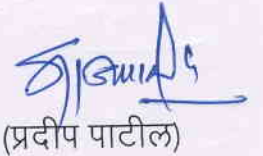 (प्रदीप पाटील)